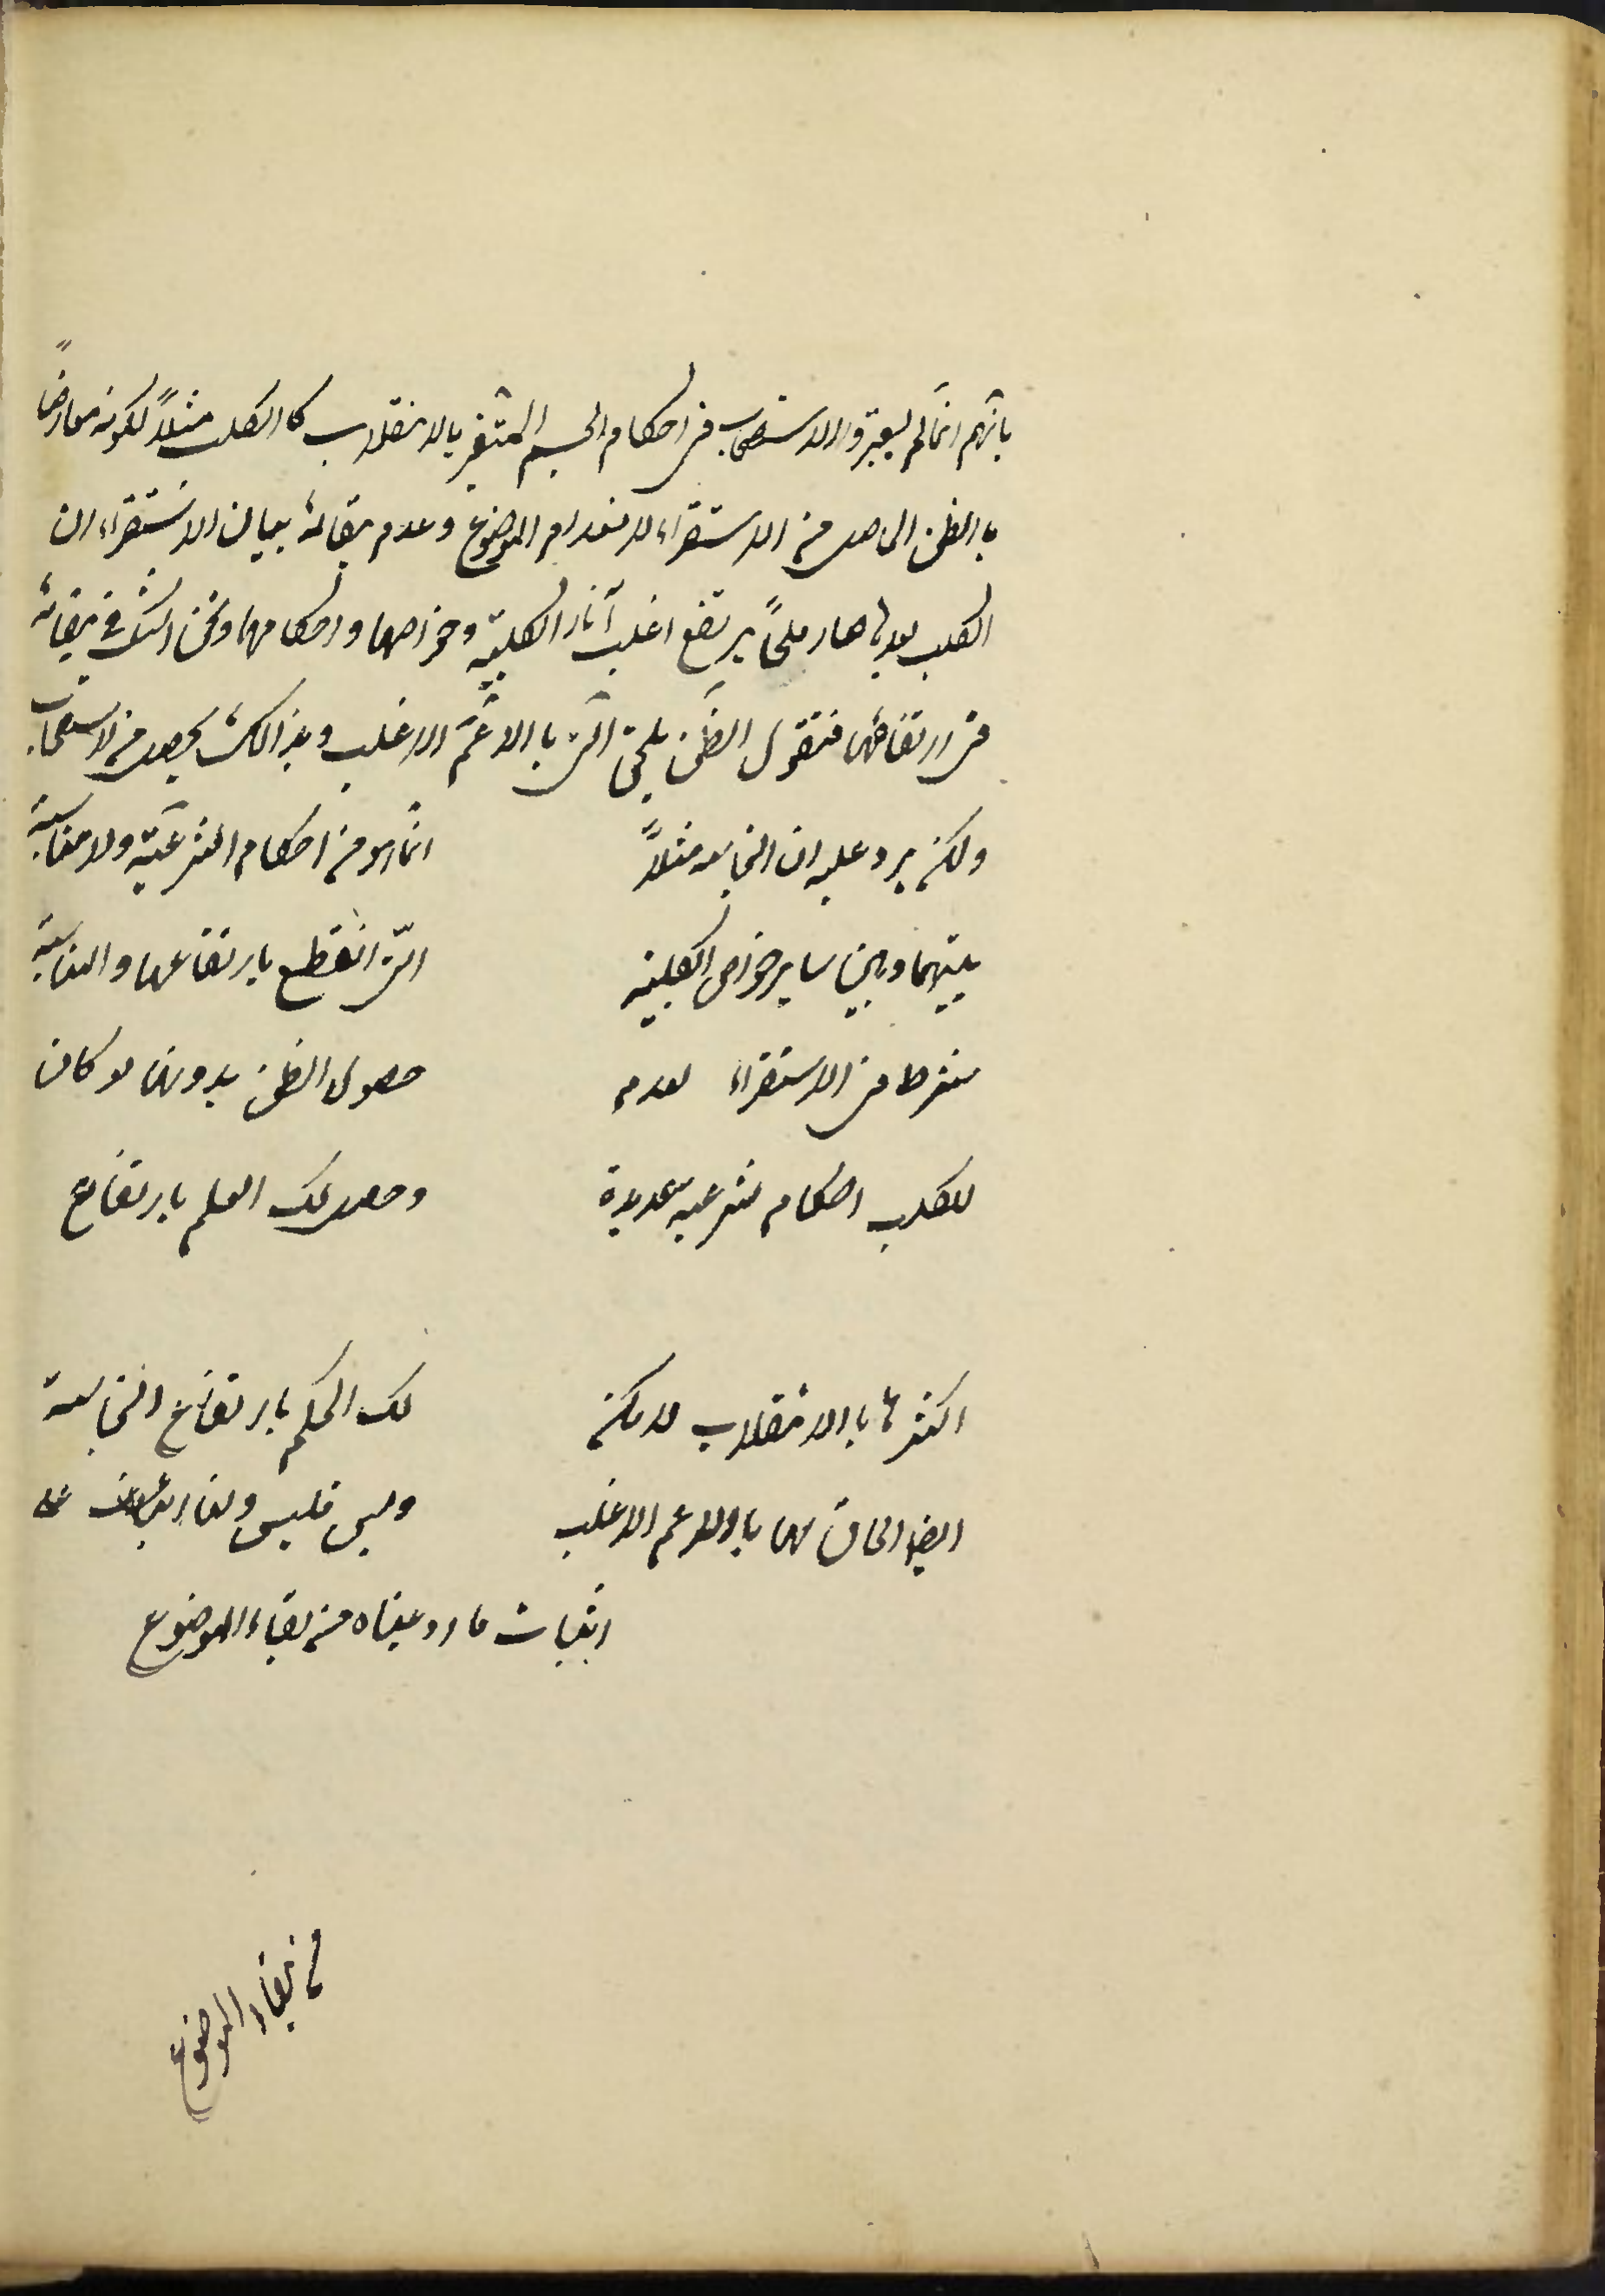 بانهم انما لم یعتبروا الاستصحاب فی احکام الجسم المتغیر بالانقلاب کالکلب مثلاً لکونه معارضاً
بالظن الحاصل من الاستقراء لانعدام الموضوع وعدم بقائه بیان الاستقراء ان
الکلب بعد ما صار ملحاً یرتفع اغلب آثار الکلبیة وخواصها واحکامها ونحن نشک فی بقائه
فی ارتفاعها فنقول الظن یلحق الشیء بالاعم الاغلب وبذلک یحصل من الاستصحاب
ولکن یرد علیه ان النجاسة مثلاً انما هو من احکام الشرعیة ولا مناسبة
بینهما وبین سایر خواص الکلبیة التی انقطع بارتفاعها والمناسبة
شرط فی الاستقراء لعدم حصول الظن بدونها لو کان
للکلب احکام شرعیة عدیدة وحصل لک العلم بارتفاع
اکثرها بالانقلاب لامکن لک الحکم بارتفاع النجاسة
ایضا الحاقا لها بالاعم الاغلب ولیس فلیس
اثبات ما ادعیناه من بقاء الموضوع
من بقاء الموضوع